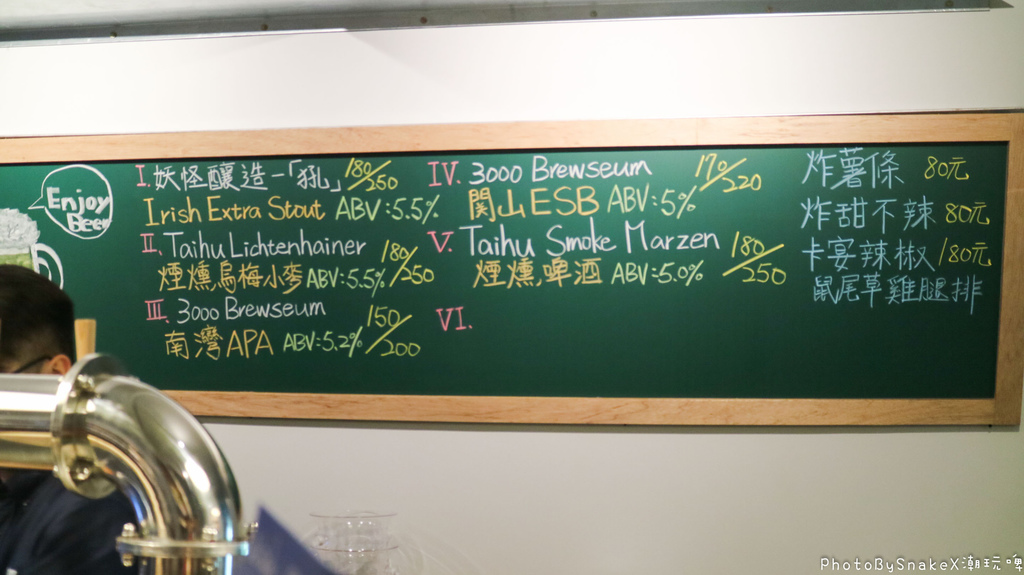 Enjoy
Beer
I. 妖怪釀造-「犼」 180/250
Irish Extra Stout ABV:5.5%
II. Taihu Lichtenhainer 180/250
煙燻烏梅小麥 ABV:5.5%
III. 3000 Brewseum 150/200
南灣APA ABV:5.2%
IV. 3000 Brewseum 170/220
関山ESB ABV:5%
V. Taihu Smoke Marzen 180/250
煙燻啤酒 ABV:5.0%
VI.
炸薯條 80元
炸甜不辣 80元
卡宴辣椒 180元
鼠尾草雞腿排
PhotoBySnakeX潮玩啤